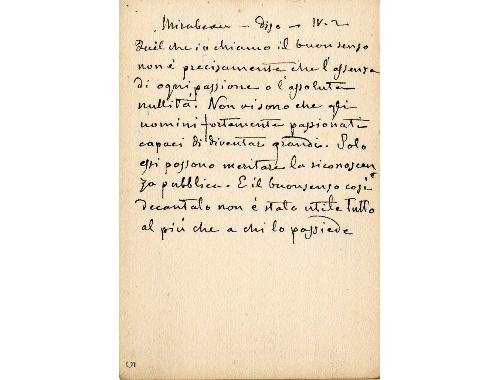 Mirabeau - Disc - IV. 2
Quel che io chiamo il buon senso
non é precisamente che l'assenza
di ogni passione o l'assoluta
nullità. Non vi sono che gli
uomini fortemente passionati
capaci di diventar grandi. Solo
essi possono meritare la riconoscen
za pubblica. E il buonsenso così
decantato non é stato utile tutto
al piú che a chi lo possiede
5